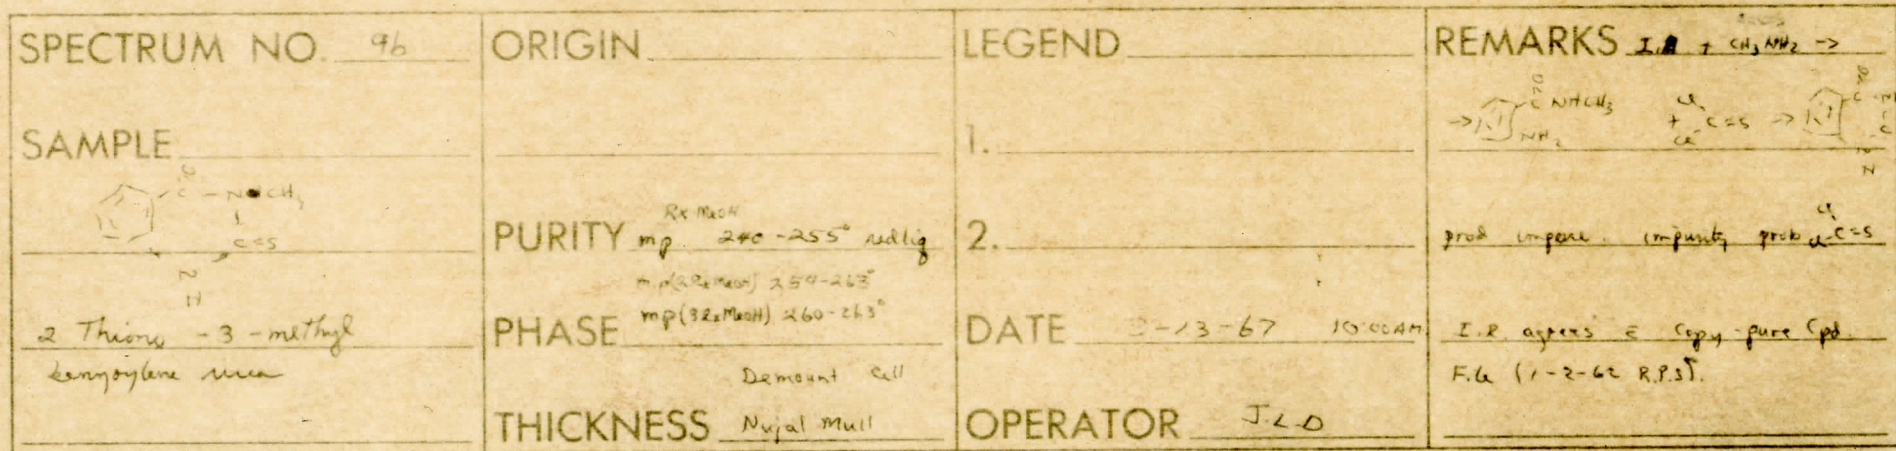 SPECTRUM NO. 96
SAMPLE
O
C - NCH3
C=S
N
H
2 Thiono - 3 - methyl
benzoylene urea
ORIGIN
PURITY
Rx MeOH
mp. 240 - 255° red liq
mp (2RxMeOH) 254-263°
PHASE mp (3RxMeOH) 260-263°
Demount Cell
THICKNESS Nujol Mull
LEGEND
1.
2.
DATE -13-67 10:00AM
OPERATOR J.L.D
REMARKS I.A + CH3NH2 →
→ C NHCH3 + Cl C=S →
NH2 Cl
N
H
prod impure. impurity prob Cl Cl C=S
I.R. agrees c̄ copy pure Cpd.
(1-2-62 R.P.S).